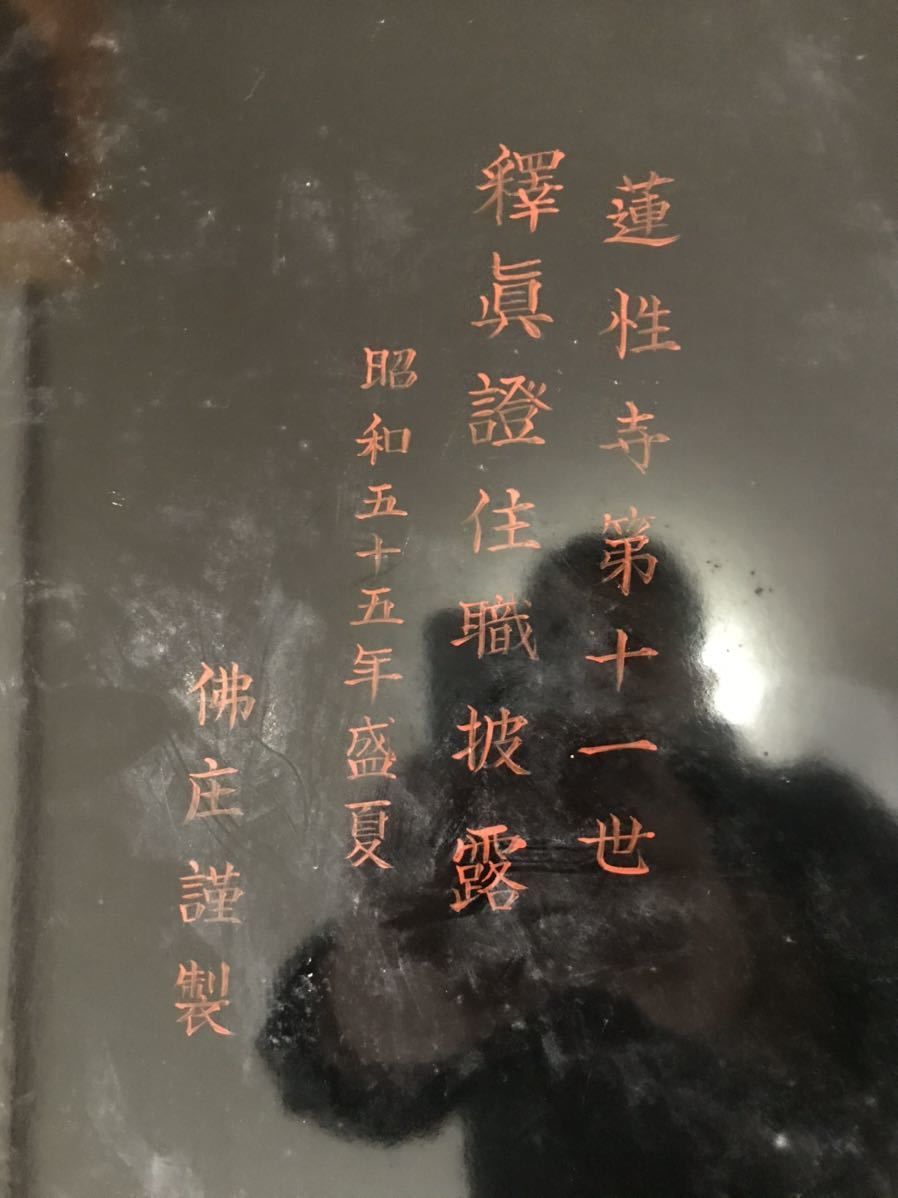 蓮性寺第十一世
釋眞證住職披露
昭和五十五年盛夏
佛庄謹製